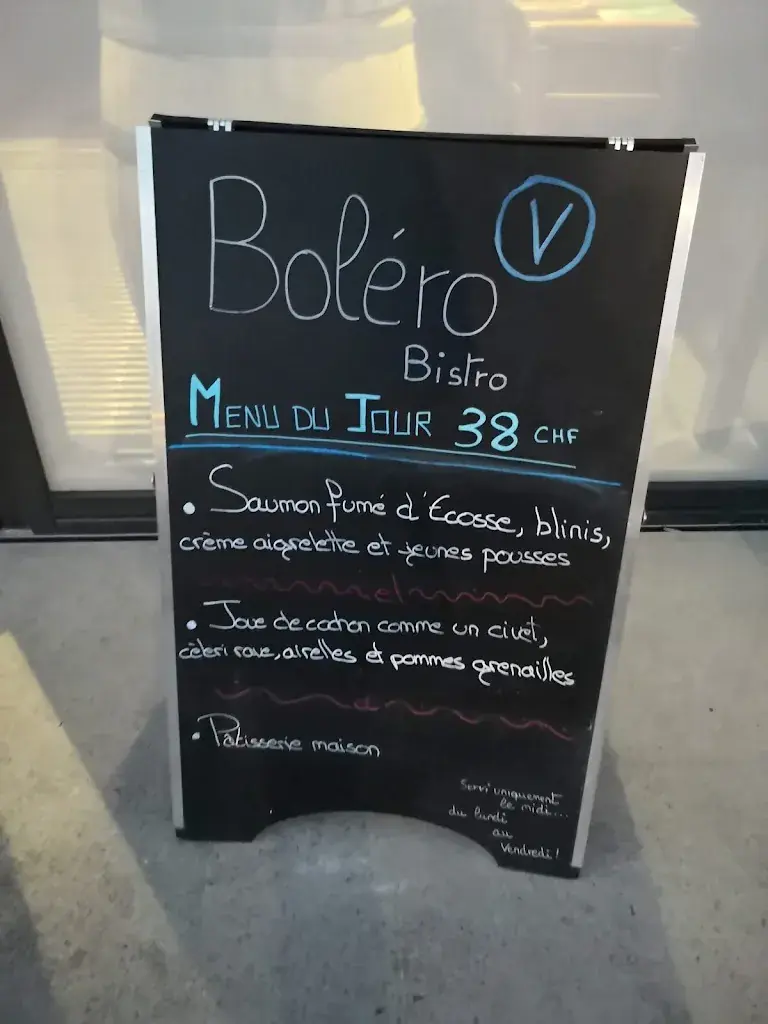 Boléro
V
Bistro
MENU DU JOUR 38 CHF
• Saumon fumé d'Ecosse, blinis,
crème aigrelette et jeunes pousses
et
• Joue de cochon comme un civet,
cèleri rave, airelles et pommes grenailles
et
• Pâtisserie maison
Servi uniquement
le midi...
du lundi
au
Vendredi!